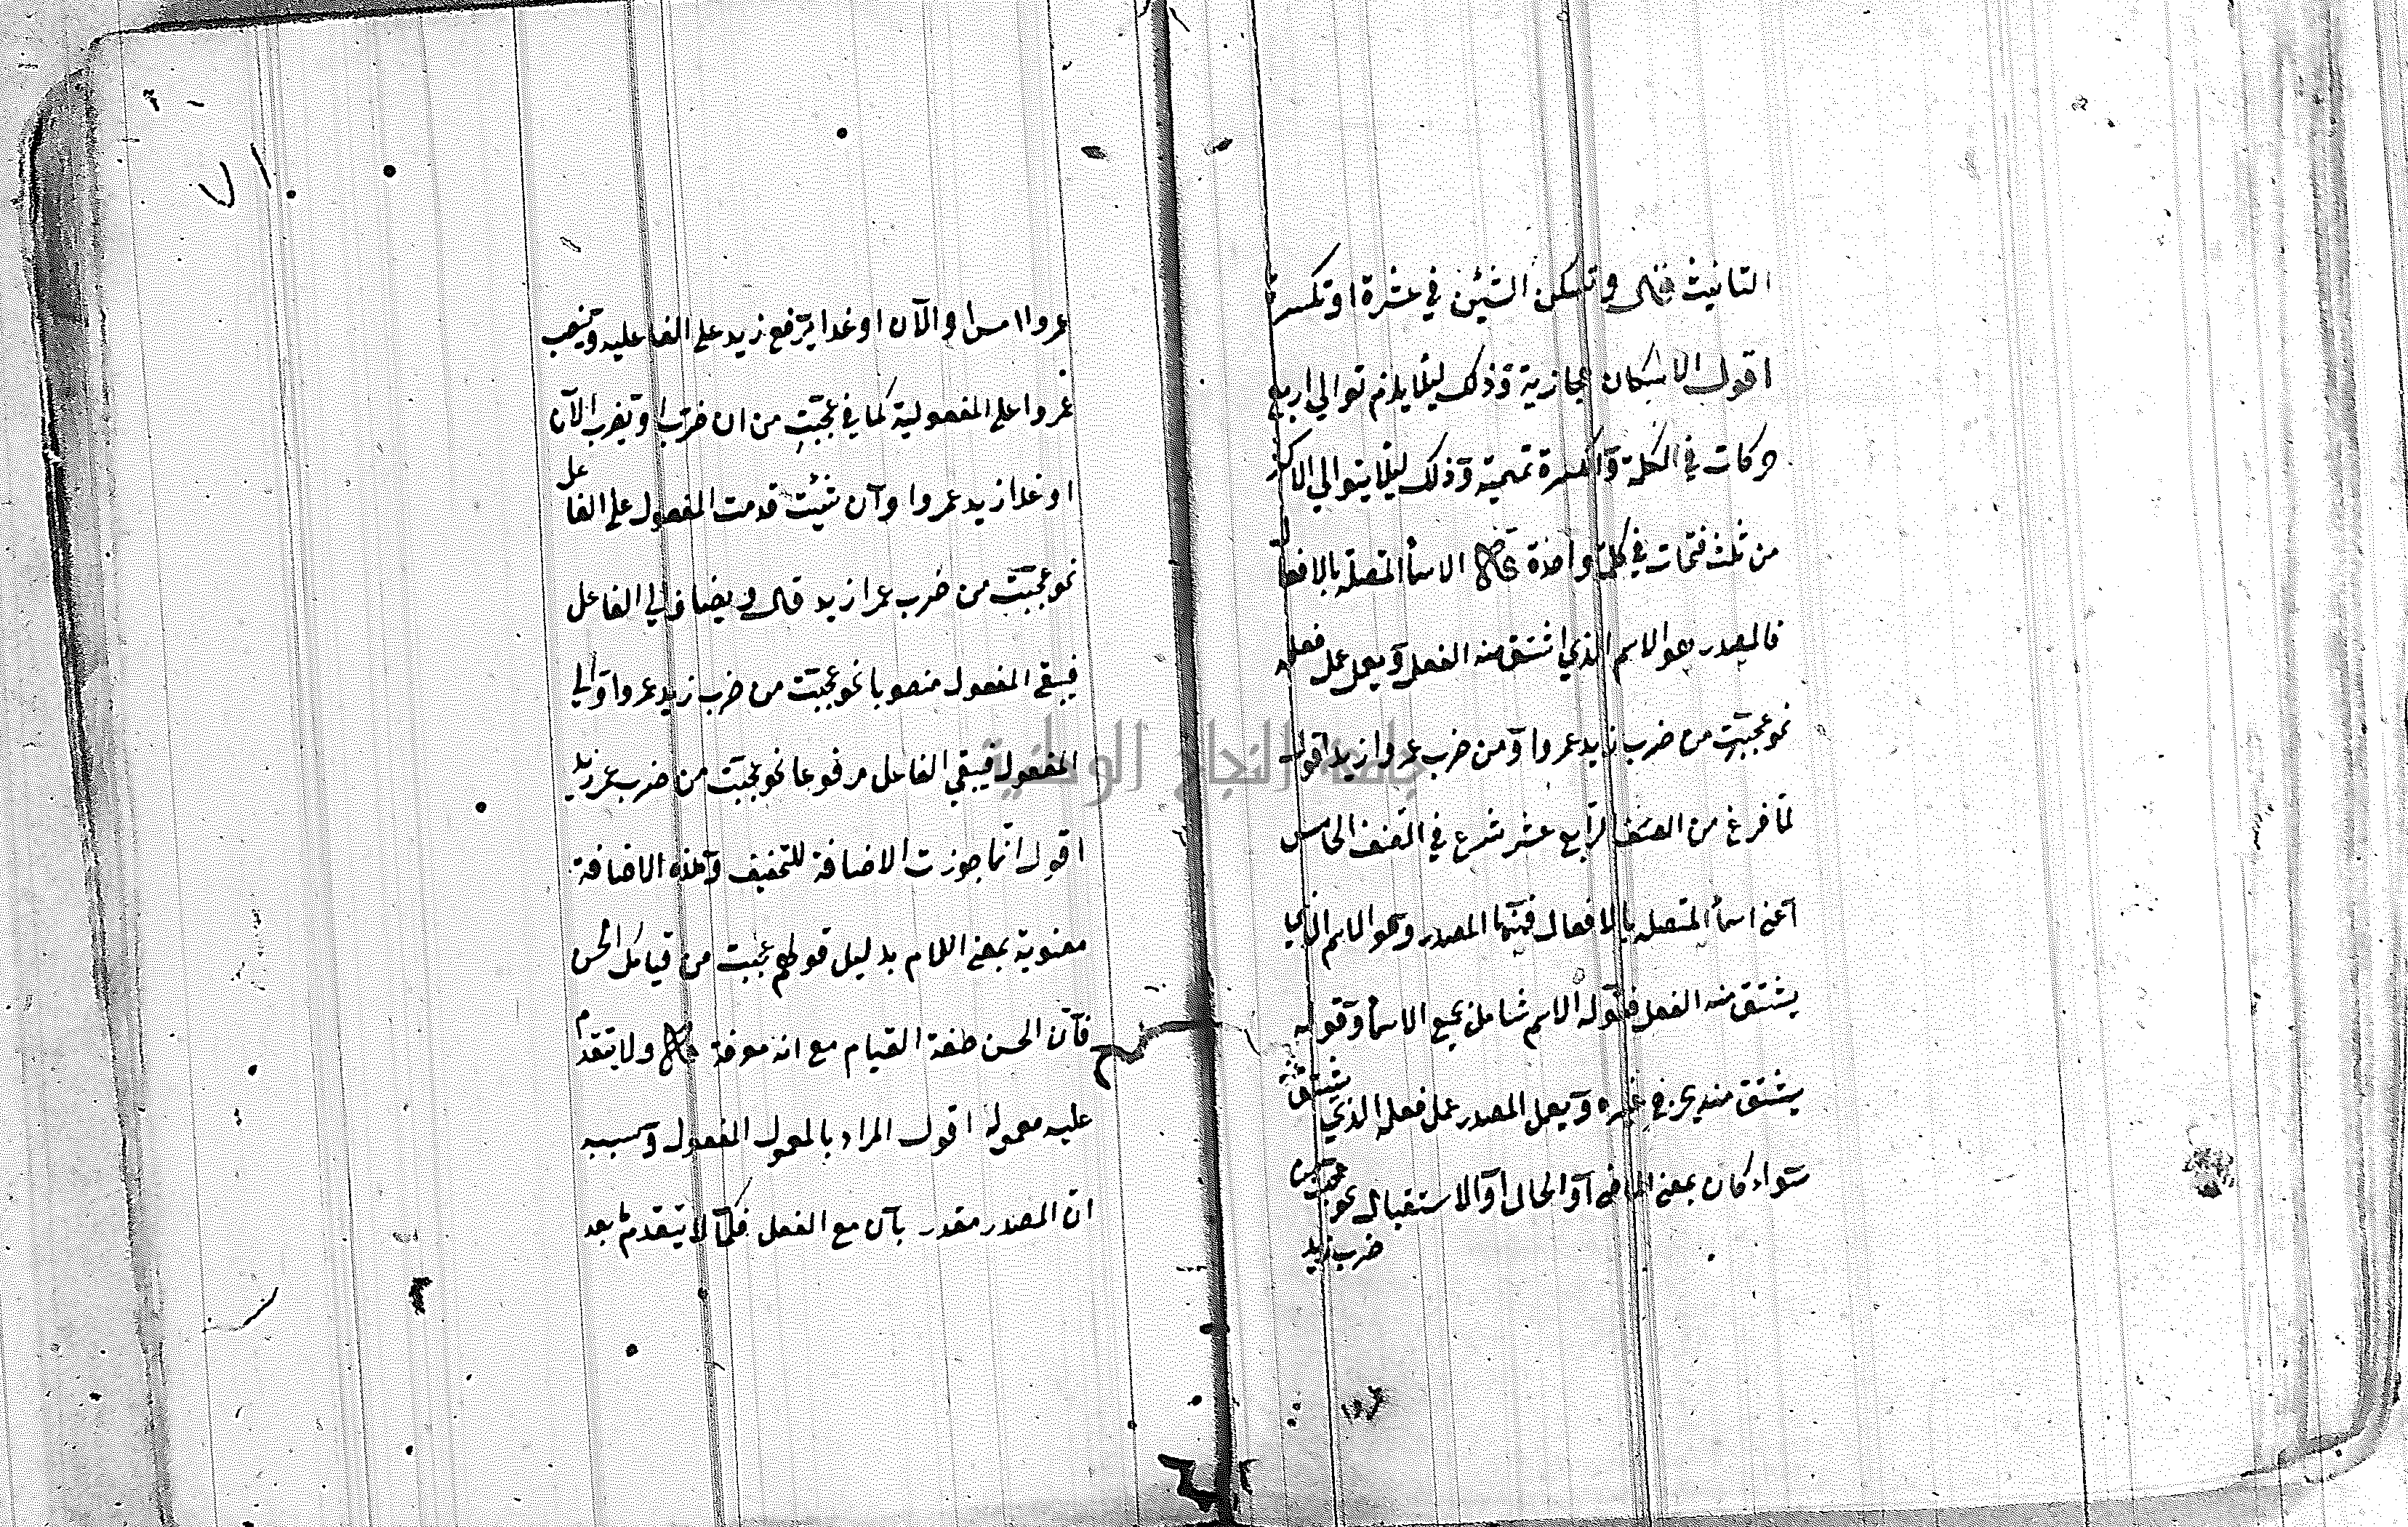 التانيث قال وتسكن الشين في عشرة او تكسر
اقول الاسكان حجازية وذلك ليلا يلزم توالي اربع
حركات في الكلمة والكسرة تميمية وذلك ليلا يتوالي الاكثر
من ثلث فتحات في كلمة واحدة قال الاسمأ المتصلة بالافعال
فالمصدر هو الاسم الذي اشتق منه الفعل ويعمل عمل فعله
نحو عجبت من ضرب زيد عمروا ومن ضرب عمروا زيد اقول
لما فرغ من الصنف الرابع عشر شرع في الصنف الخامس
اعني اسمأ المتصله بالافعال فمنها المصدر وهو الاسم الذي
يشتق منه الفعل فقوله الاسم شامل لجميع الاسمأ وقوله
يشتق منه يخرج غيره ويعمل المصدر عمل فعله الذي يشتق منه
سواء كان بمعني الماضي او الحال او الاستقبال نحو عجبت من
ضرب زيد
عمروا
٧١
عمروا امس او الآن او غدا يرفع زيد علي الفاعليه وينصب
عمروا علي المفعولية كما في عجبت من ان ضرب او يضرب الآن
او غدا زيد عمروا وان شئت قدمت المفعول علي الفاعل
نحو عجبت من ضرب عمرا زيد قال ويضاف الي الفاعل
فيبقي المفعول منصوبا نحو عجبت من ضرب زيد عمروا والي
المفعول فيبقي الفاعل مرفوعا نحو عجبت من ضرب عمر زيد
اقول انما جوزت الاضافة للتخفيف وهذه الاضافة
معنوية بمعني اللام بدليل قولهم عجبت من قيامك الحسن
فان الحسن صفة القيام مع انه معرفة قال ولا يتقدم
عليه معموله اقول المراد بالمعمول المفعول وسببه
ان المصدر مقدر بان مع الفعل فكما لا يتقدم ما بعد
جامعة النجاح الوطنية